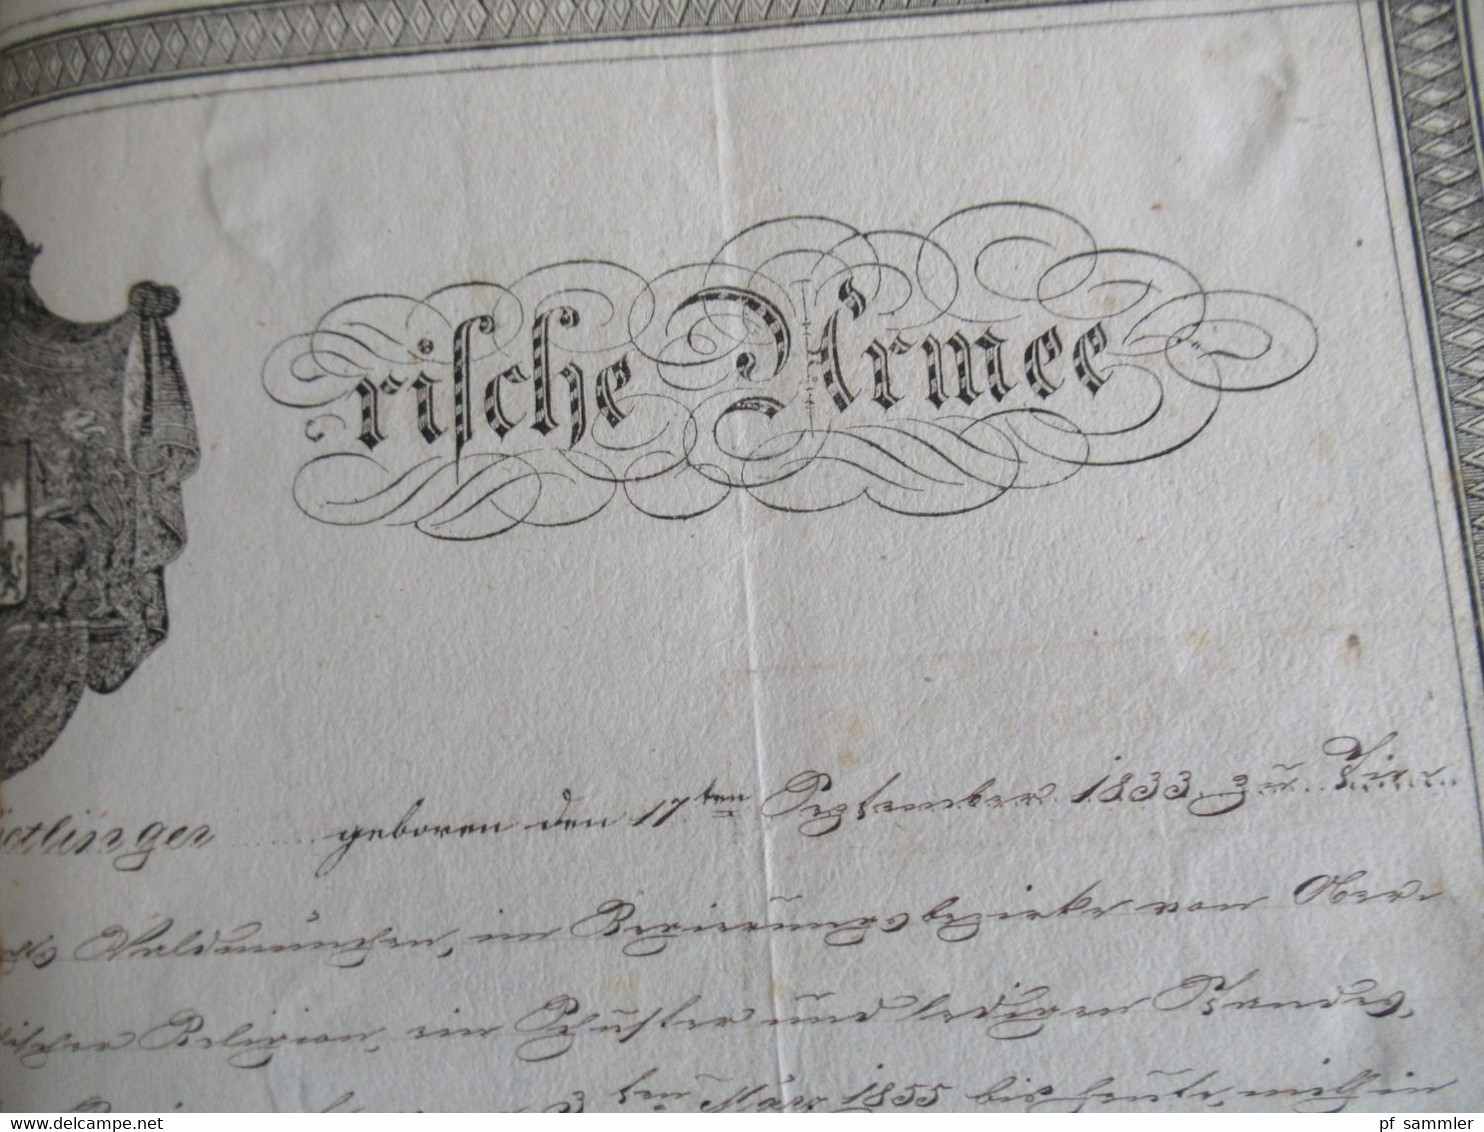 rische Armee
tlinger geboren den 17ten September 1833 zu
Waldmünchen, im Regierungsbezirke von Ober-
ischer Religion, ein Schuster und ledigen Standes,
3ten März 1855 bis heute, mithin
pf sammler